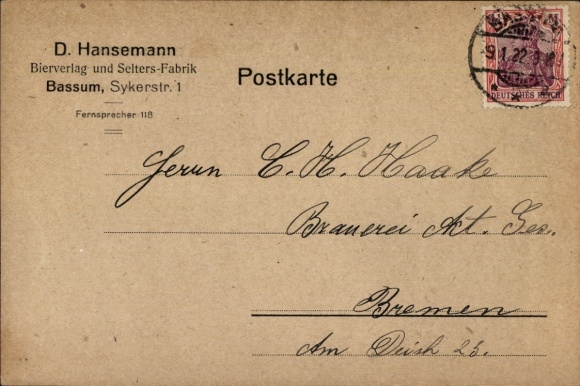 D. Hansemann
Bierverlag und Selters-Fabrik
Bassum, Sykerstr. 1
Fernsprecher 118
Postkarte
BASSUM
9.1.22
DEUTSCHES REICH
Herrn C. H. Haake
Brauerei Akt. Ges.
Bremen
Am Deich 25.